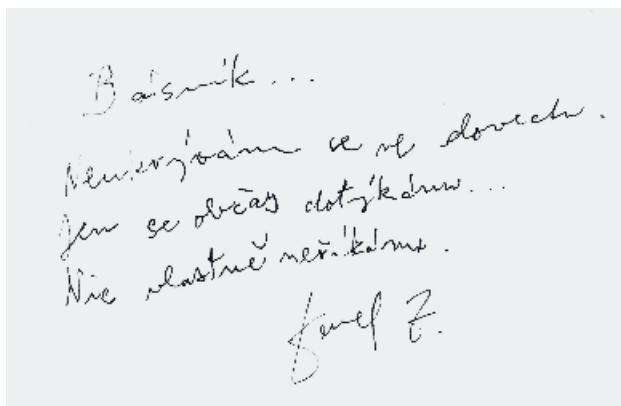 Básník...
Neukrývám se ve slovech.
Jen se občas dotýkám...
Nic vlastně neříkám.
Z.